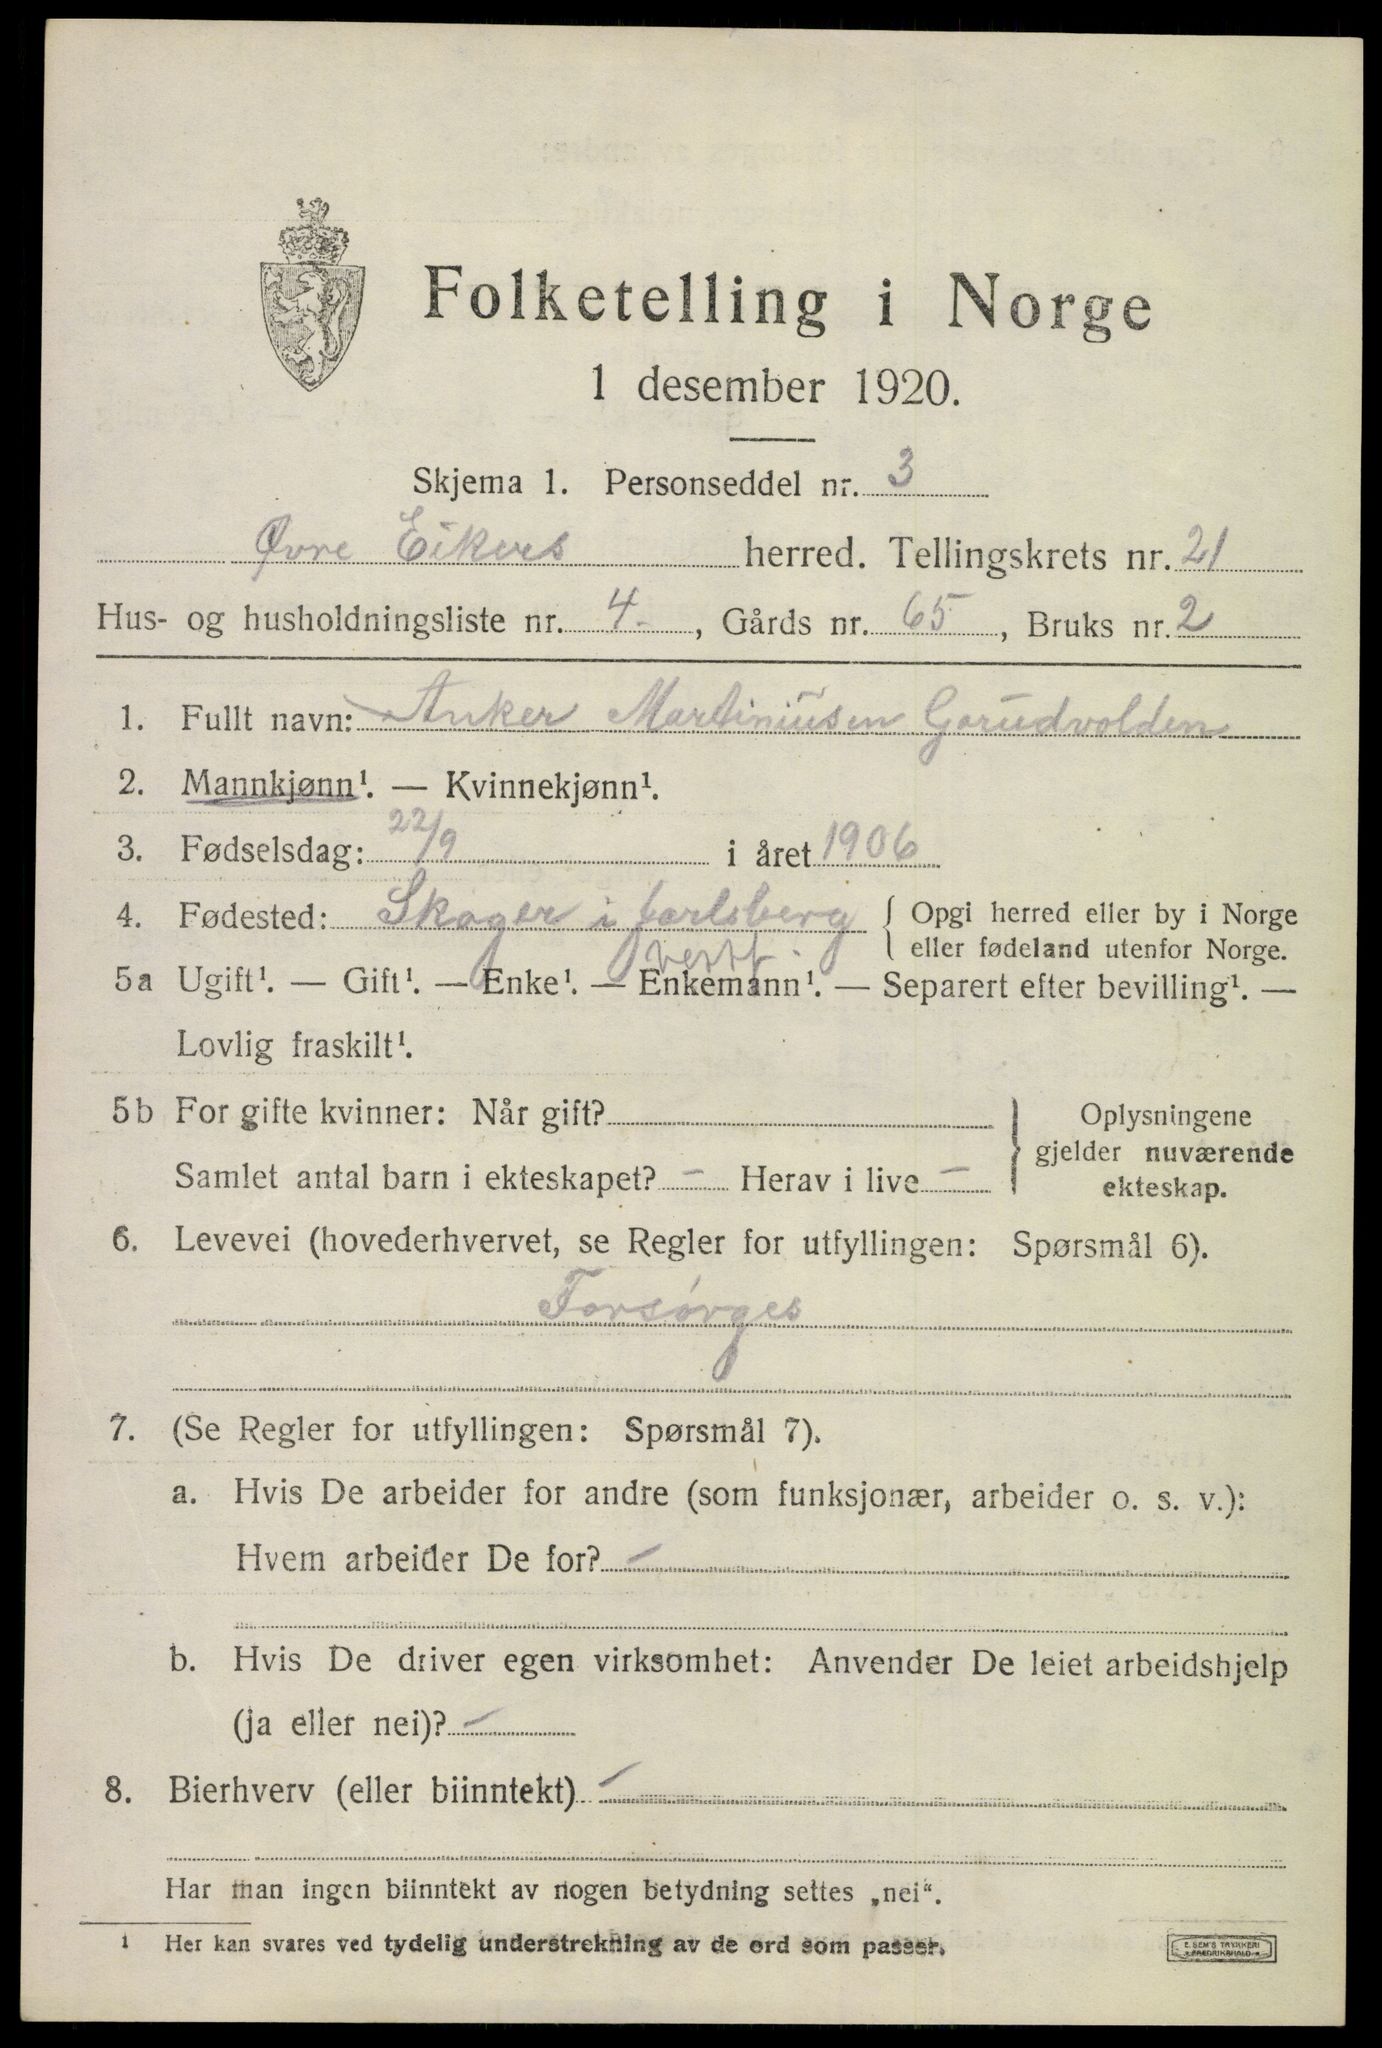 Folketelling i Norge
1 desember 1920.
Skjema 1. Personseddel nr. 3
Øvre Eikers herred. Tellingskrets nr. 21
Hus- og husholdningsliste nr. 4. , Gårds nr. 65 , Bruks nr. 2
1. Fullt navn: Anker Martiniusen Gorudvolden
2. Mannkjønn¹. — Kvinnekjønn¹.
3. Fødselsdag: 22/9 i året 1906
4. Fødested: Skoger i Jarlsberg { Opgi herred eller by i Norge
eller fødeland utenfor Norge.
5a Ugift¹. — Gift¹. — Enke¹. — Enkemann¹. — Separert efter bevilling¹. —
Lovlig fraskilt¹.
5b For gifte kvinner: Når gift?
Samlet antal barn i ekteskapet? — Herav i live —
} Oplysningene
gjelder nuværende
ekteskap.
6. Levevei (hovederhvervet, se Regler for utfyllingen: Spørsmål 6).
Forsørges
7. (Se Regler for utfyllingen: Spørsmål 7).
a. Hvis De arbeider for andre (som funksjonær, arbeider o. s. v.):
Hvem arbeider De for? —
b. Hvis De driver egen virksomhet: Anvender De leiet arbeidshjelp
(ja eller nei)? —
8. Bierhverv (eller biinntekt) —
Har man ingen biinntekt av nogen betydning settes „nei“.
¹ Her kan svares ved tydelig understrekning av de ord som passer.
E. SEM'S TRYKKERI
FREDRIKSHALD